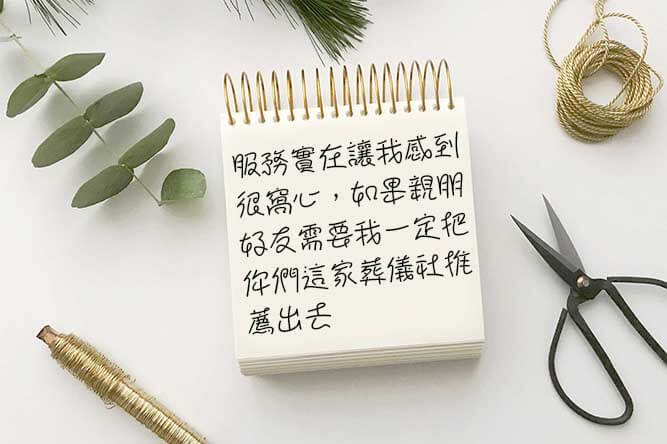 服務實在讓我感到
很窩心，如果親朋
好友需要我一定把
你們這家葬儀社推
薦出去